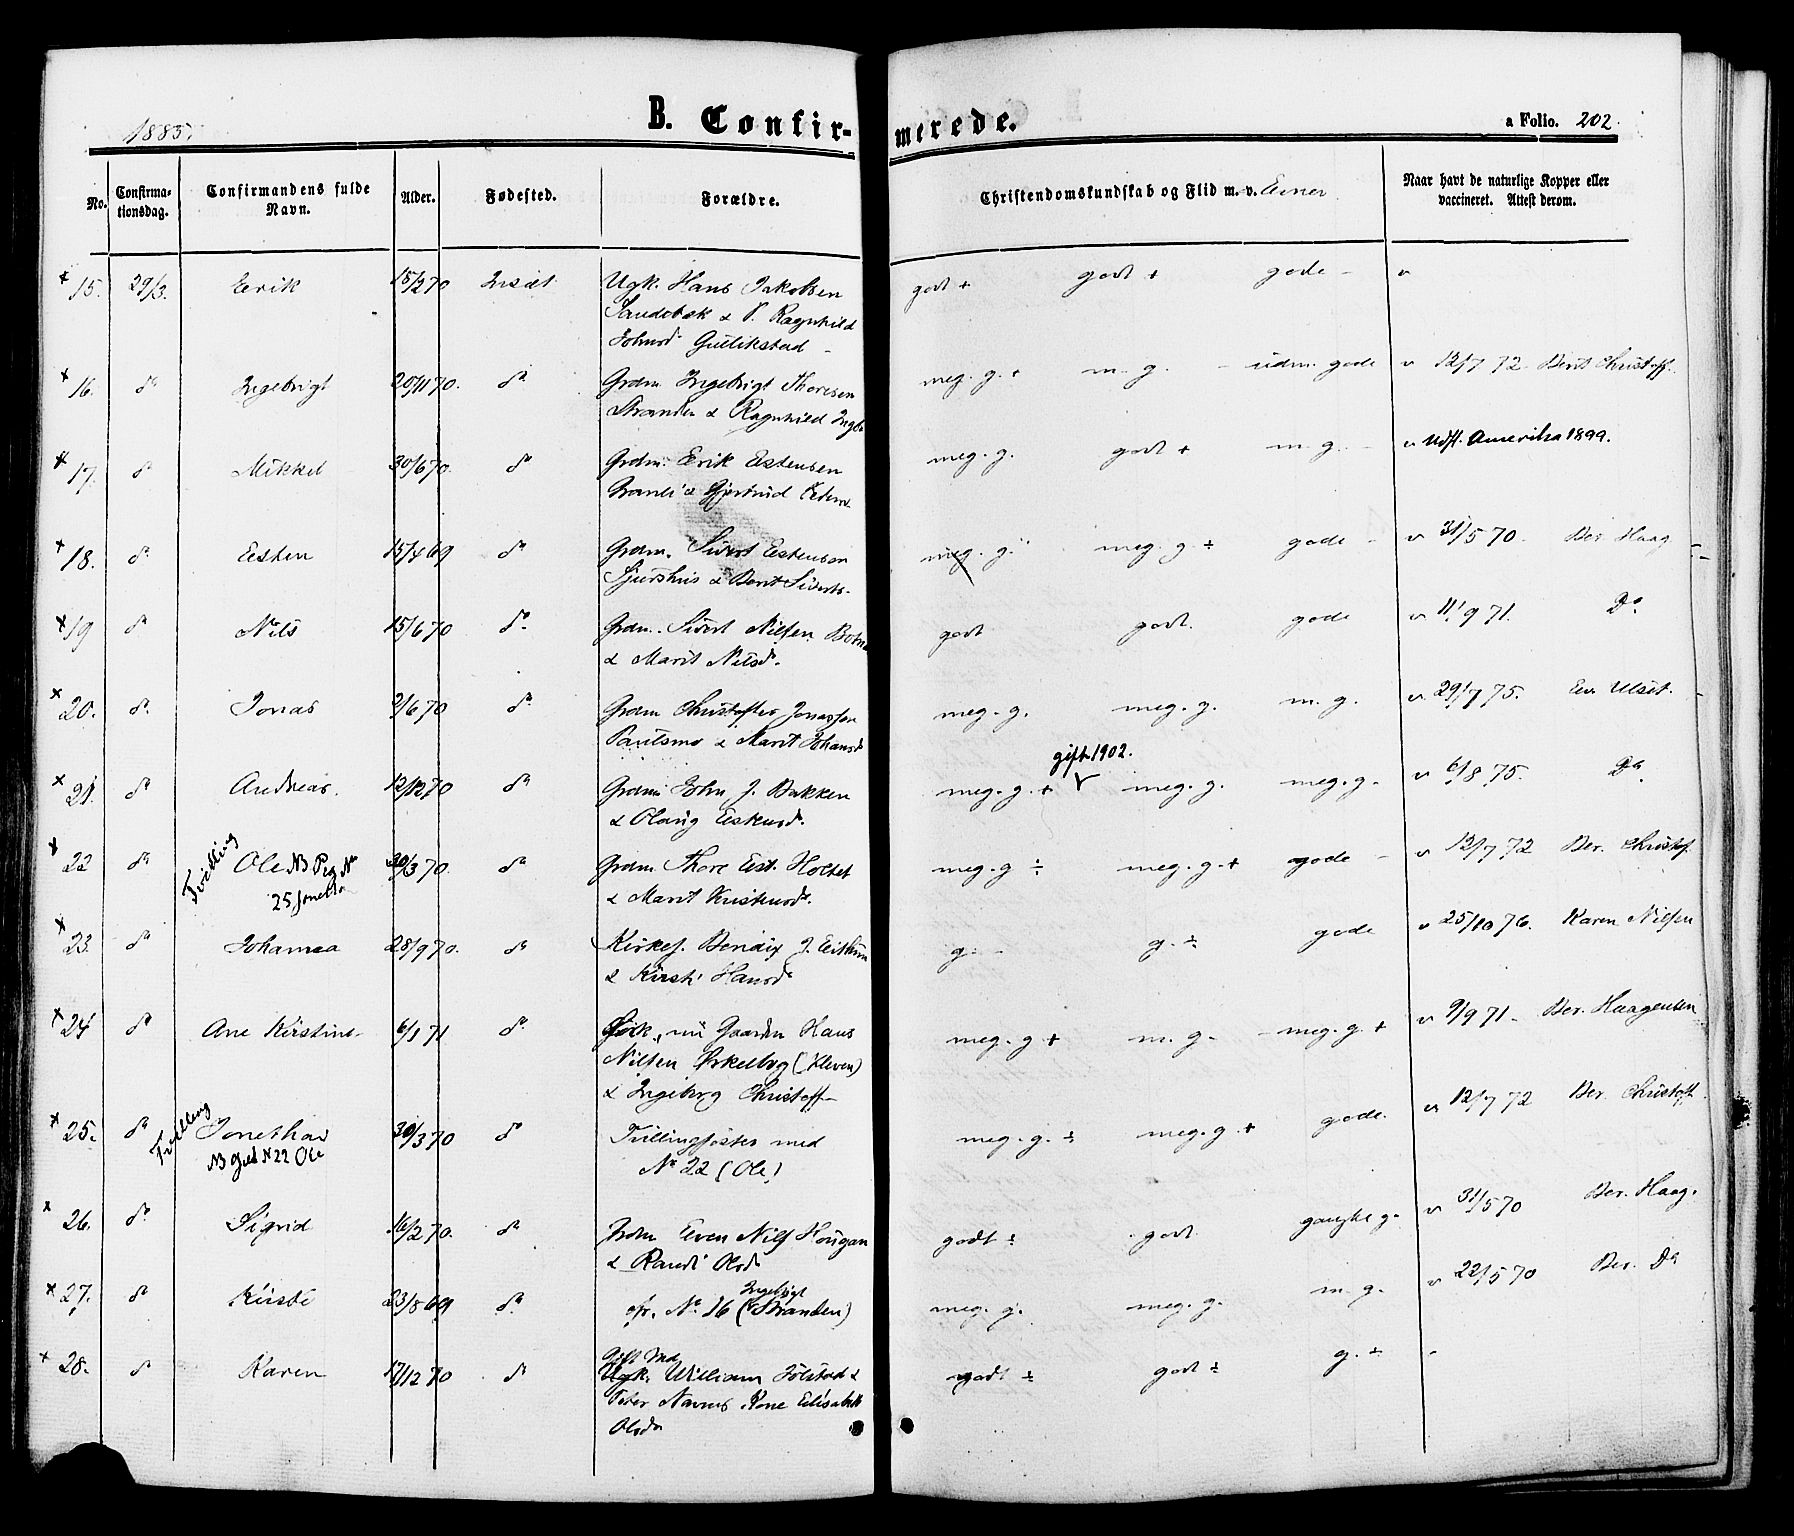 1885.
B. Confir-
merede.
a Folio. 202.
No.
Confirma-
tionsdag.
Confirmandens fulde
Navn.
Alder.
Fødested.
Forældre.
Christendomskundskab og Flid m. v. Evner
Naar havt de naturlige Kopper eller
vaccineret. Attest derom.
15. 29/3. Eerik Insæt Ugk. Hans Jakobsen
Sandbæk & P. Ragnhild
Johnsd Gullikstad
godt + godt + gode - v
16. do Ingebrigt 20/11 70. do Grdm. Ingebrigt Thoresen
Stranden & Ragnhild Ingb
meg. g. + m. g. - udm. gode v 12/7 72 Berit Christoff.
17. do Mikkel 30/6 70. do Grdm. Eerik Estensen
& Gjertrud Peders
meg. g. godt + m. g. - v Udfl. Amerika 1899.
18. do Eesten 15/4 69 do Grdm. Sivert Eestensen
Sjurshus & Berit Siverts.
meg. g. meg. g. ÷ gode - v 31/5 70. Ber. Haag
19 do Nils 15/6 70 do Grdm. Sivert Nilsen Botn
& Marit Nilsd.
godt godt. gode v 11/9 71. Do
20. do Jonas 2/6 70 do Grdm Christoffer Jonassen
Paulsmo & Marit Johansd
meg. g. meg. g. m. g. v 29/7 75. Een Ulset.
gift 1902.
21. do Andreas. 12/12 70 do Grdm John J. Bakken
& Olaug Eestensd.
meg. g. + meg. g. meg. g. v 6/8 75. Do
22 do Tvilling Ole NB Pig No
25 Jonetha
30/3 70. do Grdm. Thore Est. Holtet
& Marit Kristensd.
meg. g ÷ meg. g. + gode - v 12/7 72 Ber. Christof.
23. do Johanna 28/9 70. do Kirkes. Bendix J.
& Kirsti Hansd
g. - g. ÷ gode v 25/10 76. Karen Nilsen
24 do Ane Kirstine 6/1 71 do nu Gaardm Hans
Nilsen (Kleven)
& Ingeborg Christoff-
meg. g + m. g - meg. g + v 9/9 71 - Ber. Haagensen
25. do Tvilling Jonetha
NB Gut N 22 Ole
30/3 70 do Tvillingsøster med
No 22 (Ole)
meg. g. ÷ meg. g. + gode. v 12/7 72 Ber. Christoff
26. do Sigrid 16/2 70. do Grdm Even Nils Hougan
& Randi Olsd
godt ÷ godt ganske g. v 31/5 70 Ber. Haag.
27. do Kirsti 23/8 69 do cfr. No 16 (Ingebrigt Stranden)
meg. g. meg. g. m. g. v 22/5 70 Ber. Do
28. do Karen 17/12 70 do Gift Md
Ugk. William Jolstad &
Peter Kone Elisabeth
Olsd
godt ÷ godt ÷ g. ÷ -